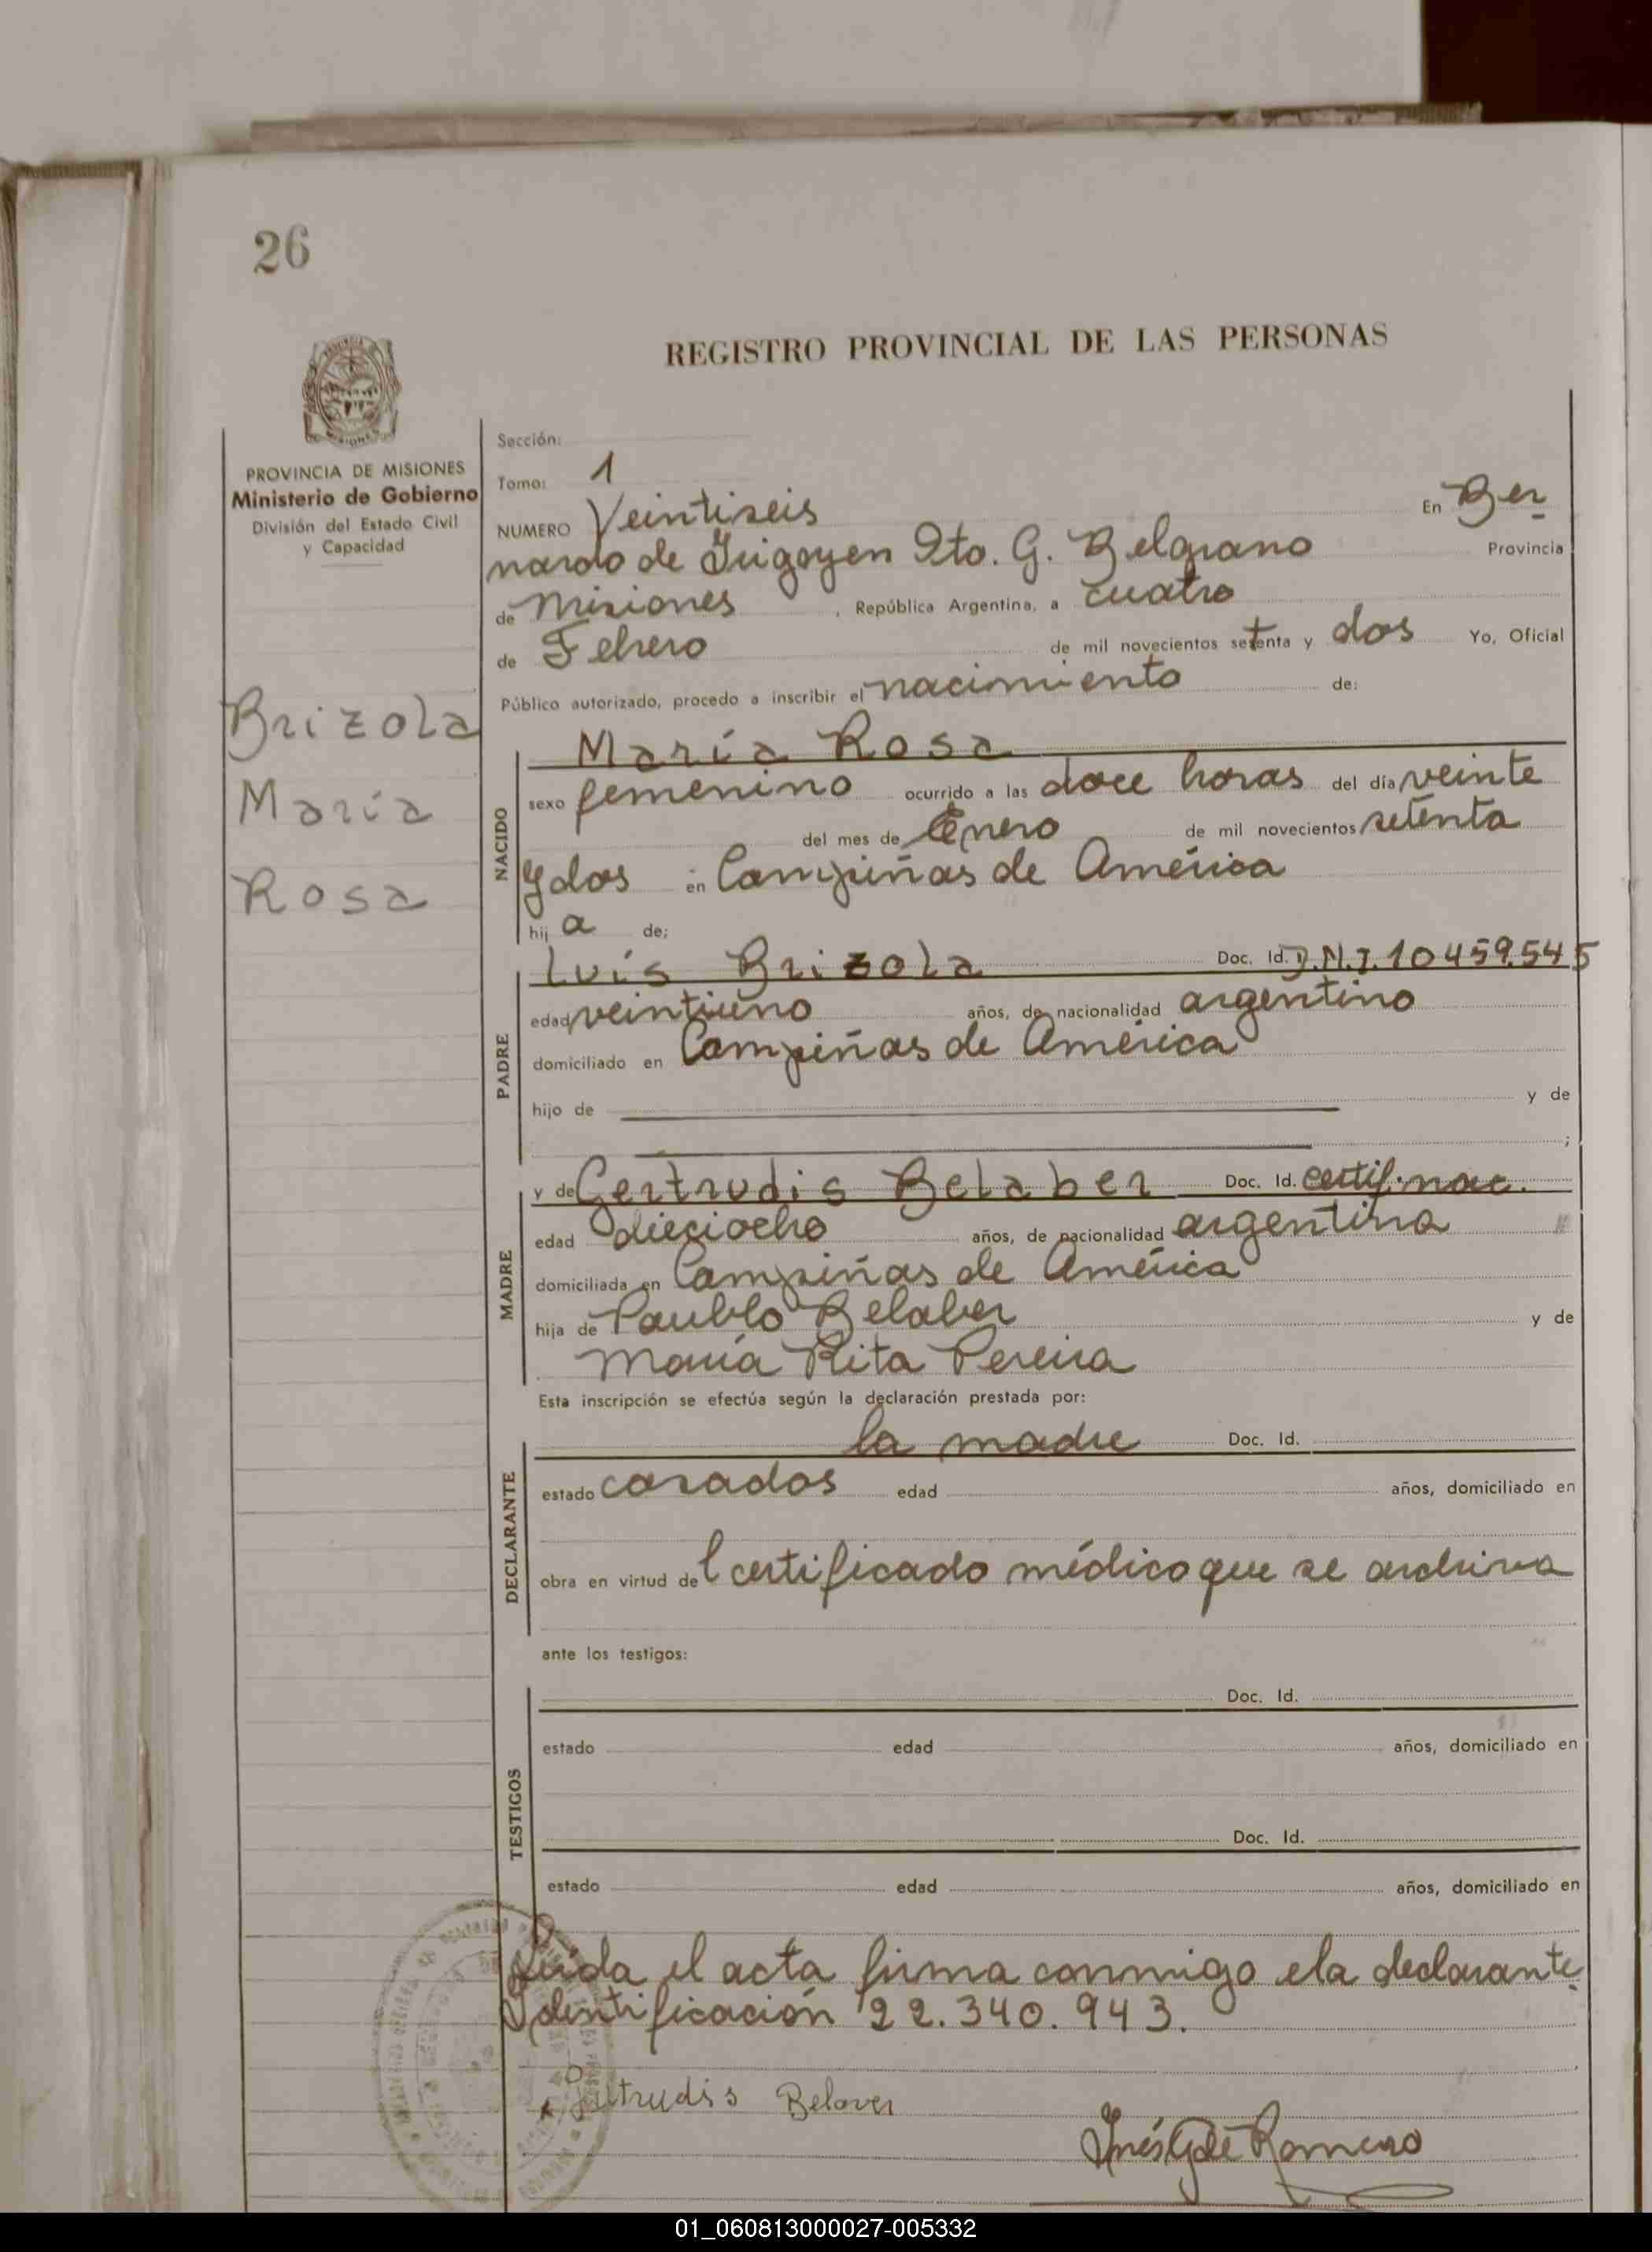 26
REGISTRO PROVINCIAL DE LAS PERSONAS
PROVINCIA DE MISIONES
Ministerio de Gobierno
División del Estado Civil
y Capacidad
Brizola
María
Rosa
Sección:
Tomo: 1
NUMERO Veintiseis En Ber
nardo de Irigoyen Dto. G. Belgrano Provincia
de Misiones, República Argentina, a cuatro
de Febrero de mil novecientos setenta y dos Yo, Oficial
Público autorizado, procedo a inscribir el nacimiento de:
María Rosa
NACIDO
sexo femenino ocurrido a las doce horas del día veinte
del mes de Enero de mil novecientos setenta
y dos en Campiñas de América
hij a de:
Luis Brizola Doc. Id. D.N.I. 10459.545
PADRE
edad veintiuno años, de nacionalidad argentino
domiciliado en Campiñas de América
hijo de y de
;
y de Gertrudis Belaber Doc. Id. certif. nac.
MADRE
edad dieciocho años, de nacionalidad argentina
domiciliada en Campiñas de América
hija de Paublo Belaber y de
María Rita Pereira
Esta inscripción se efectúa según la declaración prestada por:
la madre Doc. Id.
DECLARANTE
estado casados edad años, domiciliado en
obra en virtud del certificado médico que se archiva
ante los testigos:
Doc. Id.
TESTIGOS
estado edad años, domiciliado en
Doc. Id.
estado edad años, domiciliado en
Leida el acta firma conmigo ela declarante.
Identificación 22.340.943.
Gertrudis Belaver
Inés G de Romero
01_060813000027-005332